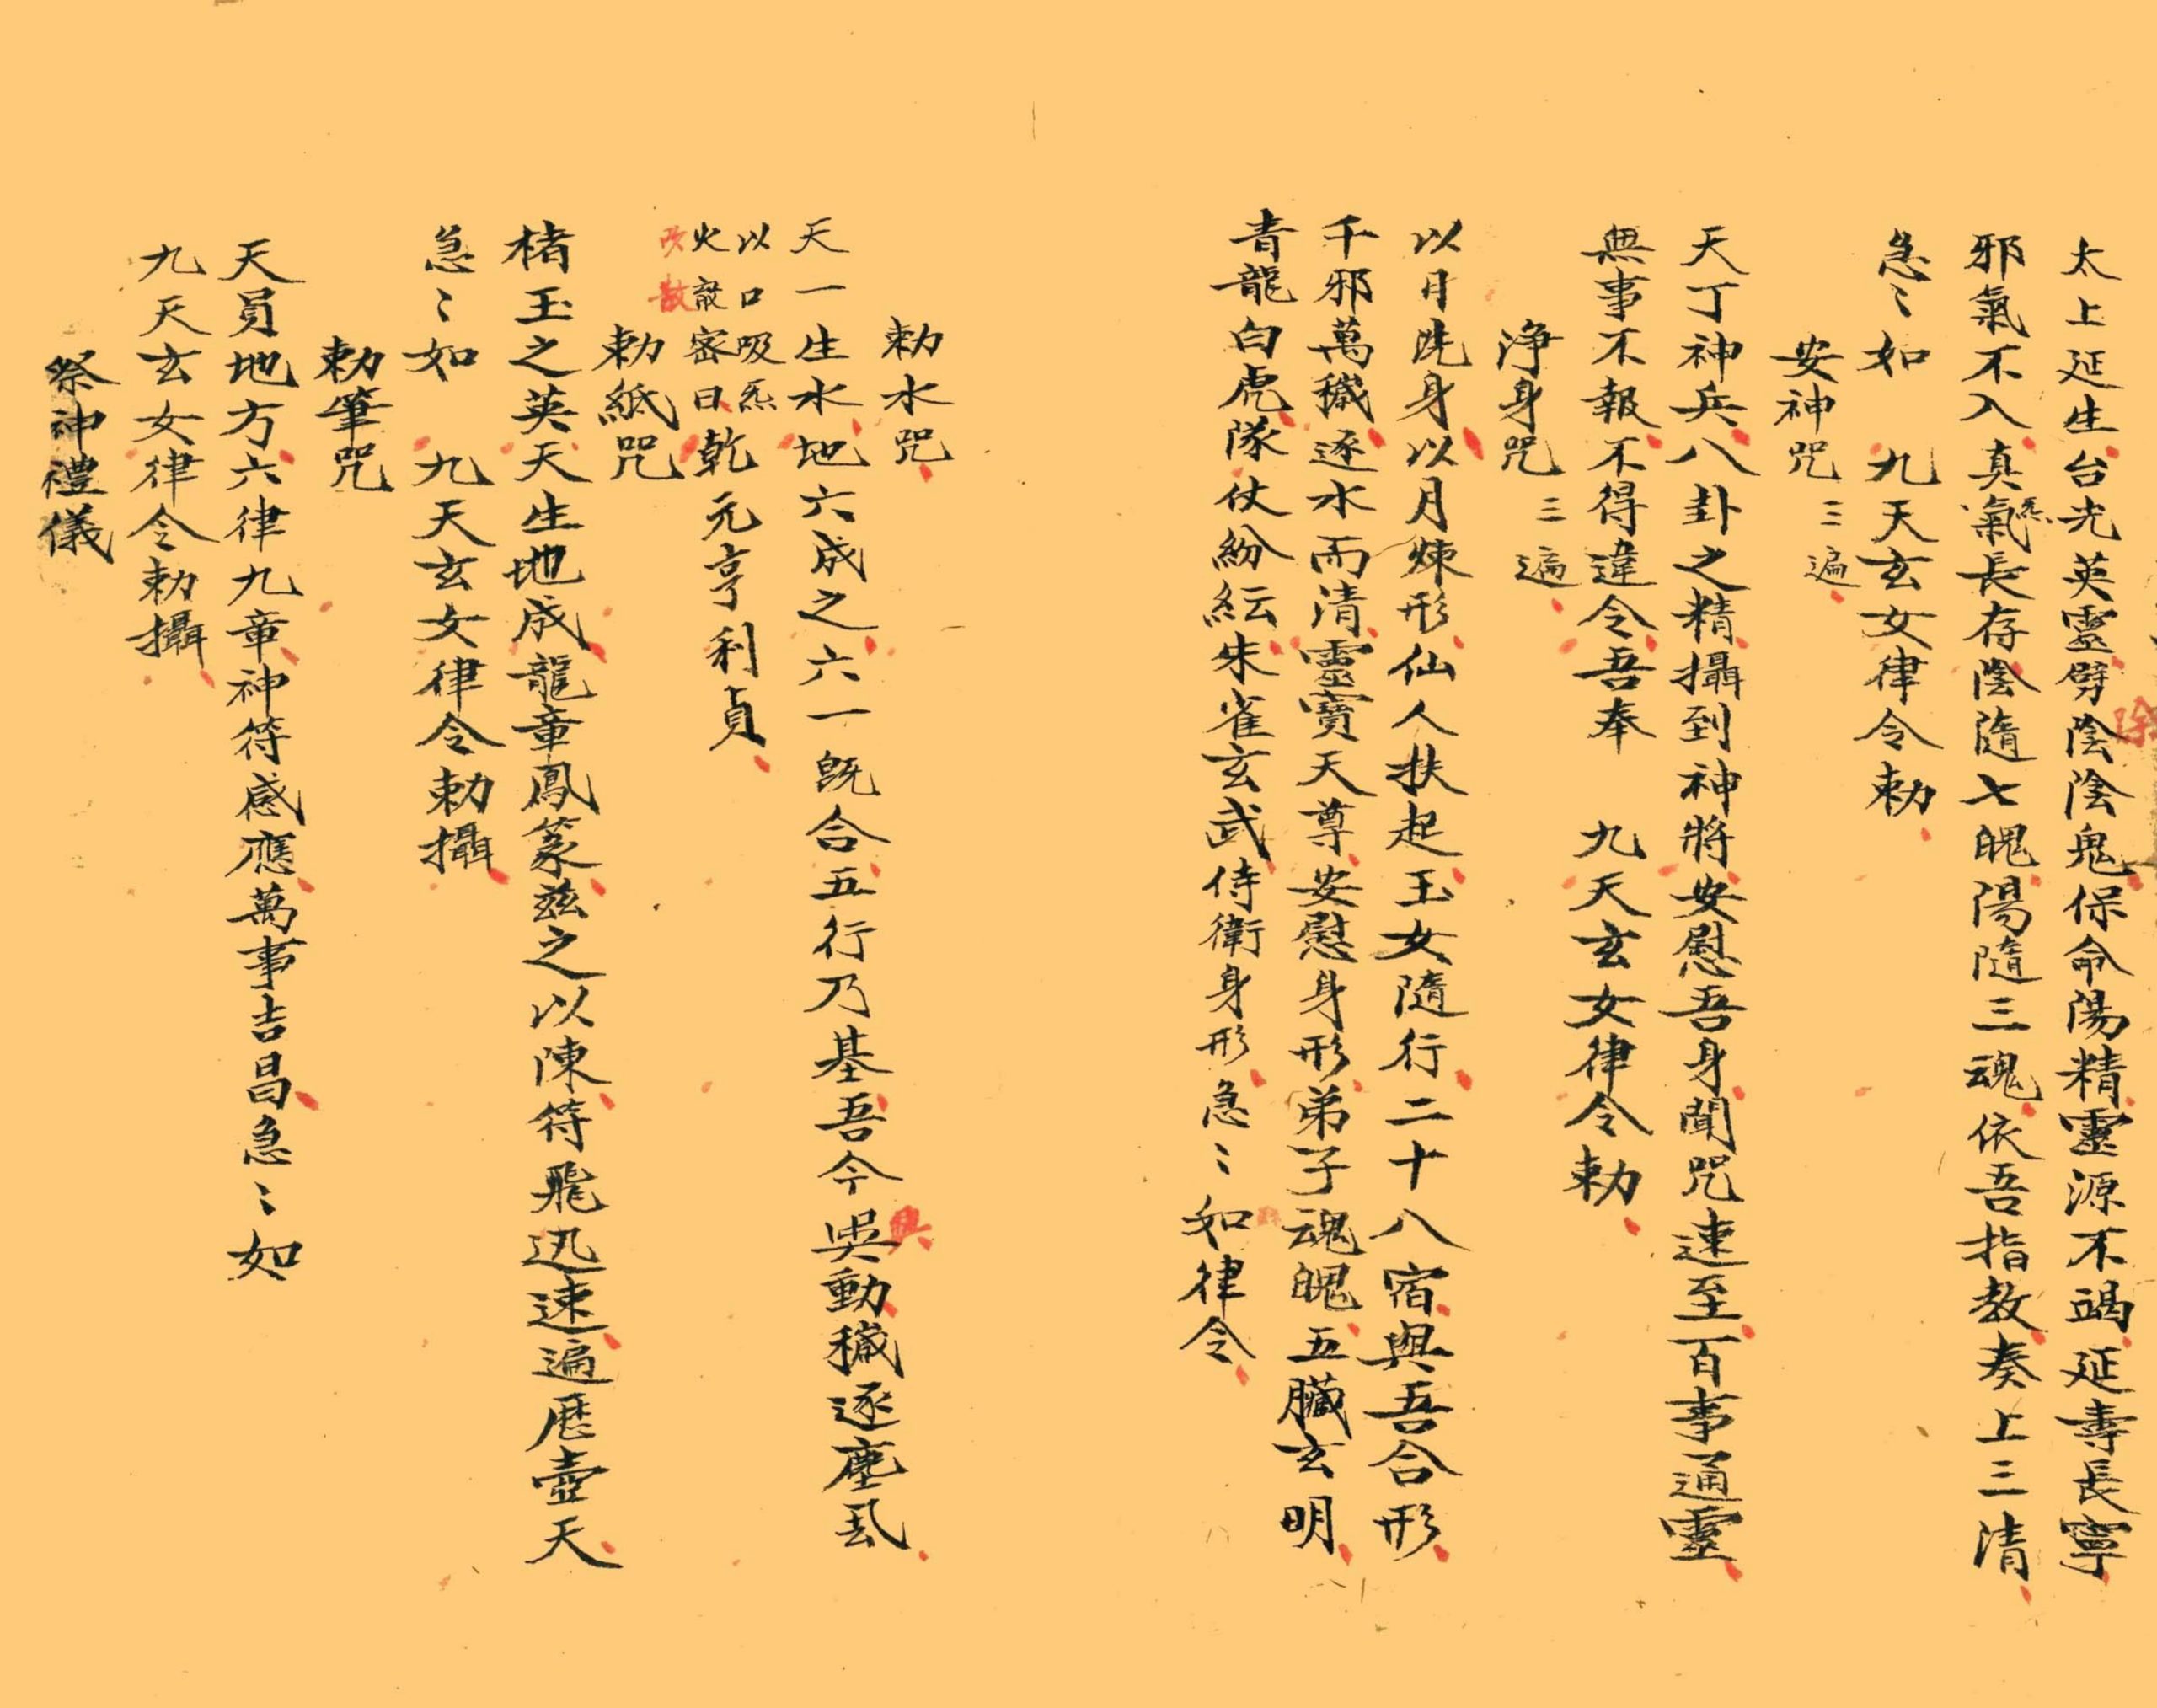 太上延生台光英靈劈陰陰鬼保命陽精靈源不竭延壽長寧
除
邪氣不入真氣長存陰隨七魄陽隨三魂依吾指教奏上三清
炁
急〻如　九天玄女律令勅
安神咒三遍
天丁神兵八卦之精攝到神將安慰吾身聞咒速至百事通靈
無事不報不得違令吾奉　九天玄女律令勅
淨身咒三遍
以日洗身以月煉形仙人扶起玉女隨行二十八宿與吾合形
千邪萬穢逐水而清靈寶天尊安慰身形弟子魂魄五臟玄明
青龍白虎隊仗紛紜朱雀玄武侍衛身形急〻如律令
勅水咒
天一生水地六成之六一既合五行乃基吾今吳動穢逐塵飛
興
以口吸炁
火敨密曰乾元亨利貞
吹散
勅紙咒
楮玉之英天生地成龍章鳳篆茲之以陳符飛迅速遍歷壺天
急〻如　九天玄女律令勅攝
勅筆咒
天員地方六律九章神符感應萬事吉昌急〻如
九天玄女律令勅攝
祭神禮儀